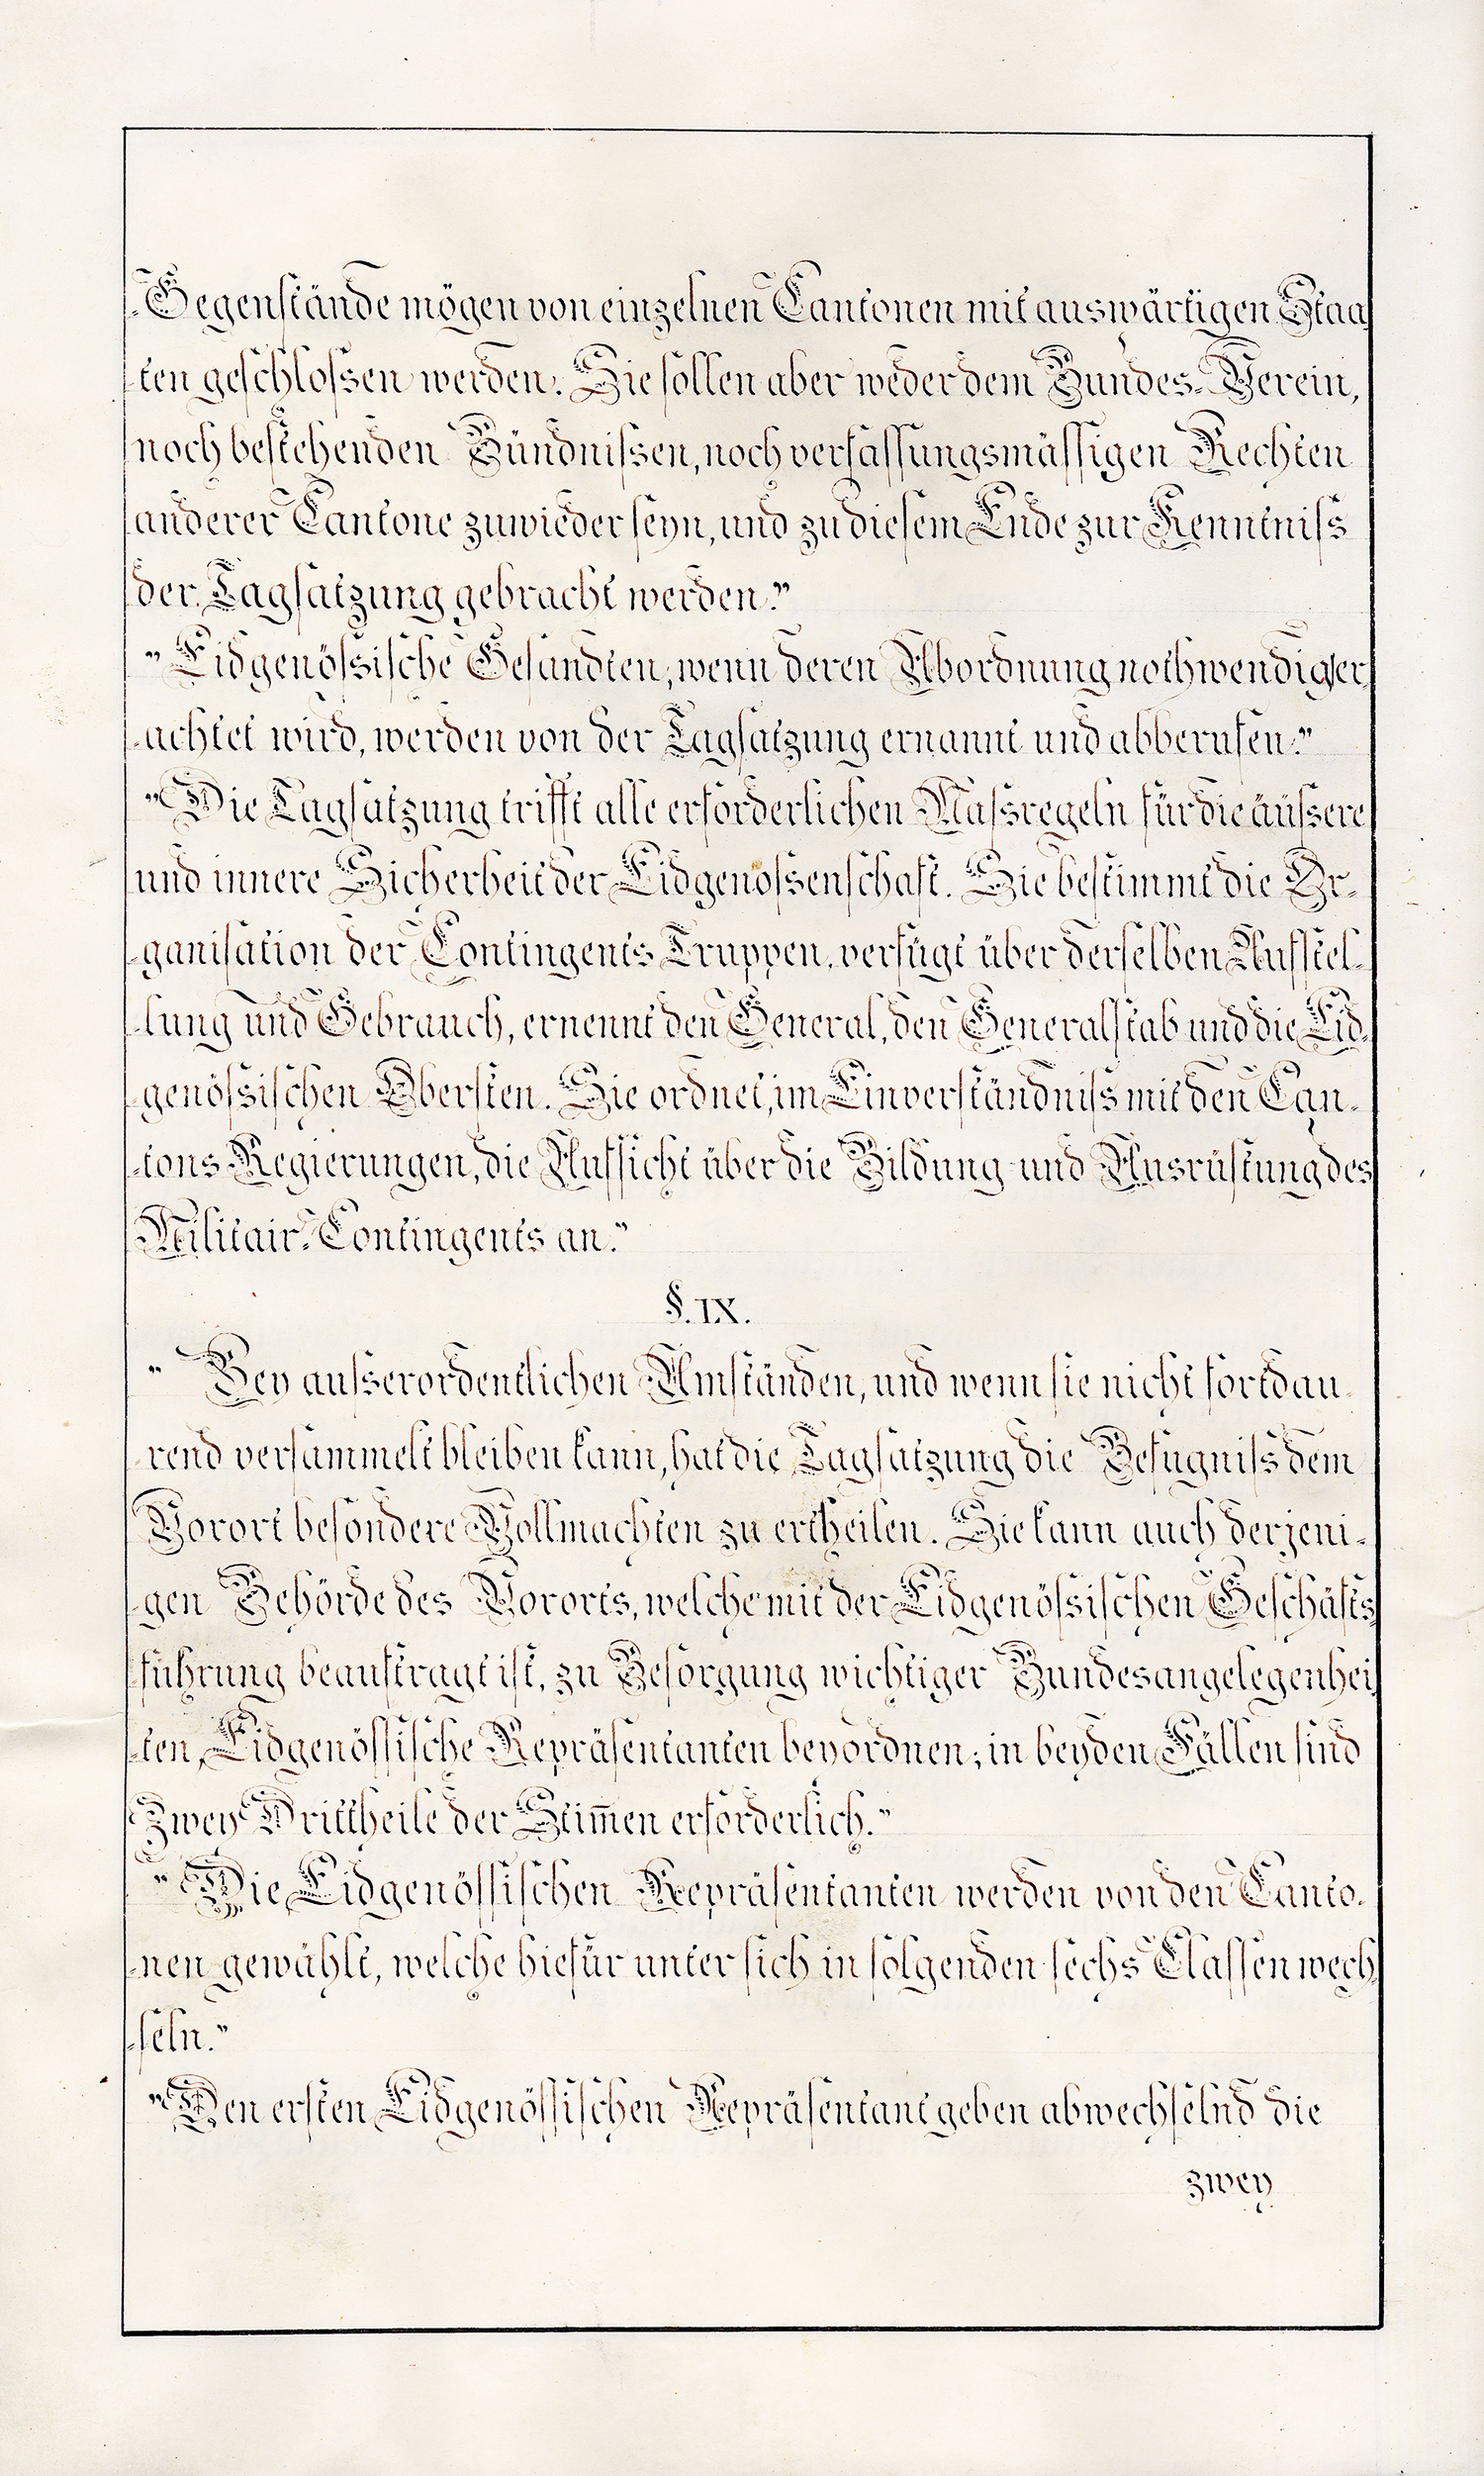 -Gegenstände mögen von einzelnen Cantonen mit auswärtigen Staa-
-ten geschlossen werden. Sie sollen aber weder dem Bundes-Verein,
noch bestehenden Bündnissen, noch verfassungsmässigen Rechten
anderer Cantone zuwieder seyn, und zu diesem Ende zur Kenntniss
der Tagsatzung gebracht werden."
"Eidgenössische Gesandten, wenn deren Abordnung nothwendig er-
-achtet wird, werden von der Tagsatzung ernannt und abberufen."
"Die Tagsatzung trifft alle erforderlichen Massregeln für die äüssere
und innere Sicherheit der Eidgenossenschaft. Sie bestimmt die Or-
-ganisation der Contingents Truppen, verfügt über derselben Aufstel-
-lung und Gebrauch, ernennt den General, den Generalstab und die Eid-
-genössischen Obersten. Sie ordnet, im Einverständniss mit den Can-
-tons Regierungen, die Aufsicht über die Bildung und Ausrüstung des
Militair-Contingents an."
§. IX.
" Bey ausserordentlichen Umständen, und wenn sie nicht fortdau-
-rend versammelt bleiben kann, hat die Tagsatzung die Befugniss dem
Vorort besondere Vollmachten zu ertheilen. Sie kann auch derjeni-
-gen Behörde des Vororts, welche mit der Eidgenössischen Geschäfts-
-führung beauftragt ist, zu Besorgung wichtiger Bundesangelegenhei-
-ten, Eidgenössische Repräsentanten beyordnen; in beyden Fällen sind
Zwey Drittheile der Stim̄en erforderlich."
"Die Eidgenössischen Repräsentanten werden von den Canto-
-nen gewählt, welche hiefür unter sich in folgenden sechs Classen wech-
-seln."
"Den ersten Eidgenössischen Repräsentant geben abwechselnd die
zwey